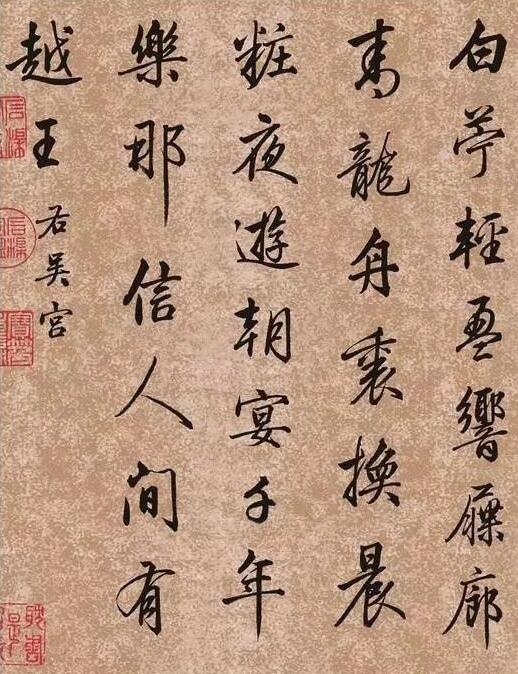 白苧輕盈響屧廊
青龍舟裏換晨
粧夜遊朝宴千年
樂那信人間有
越王
右吳宮